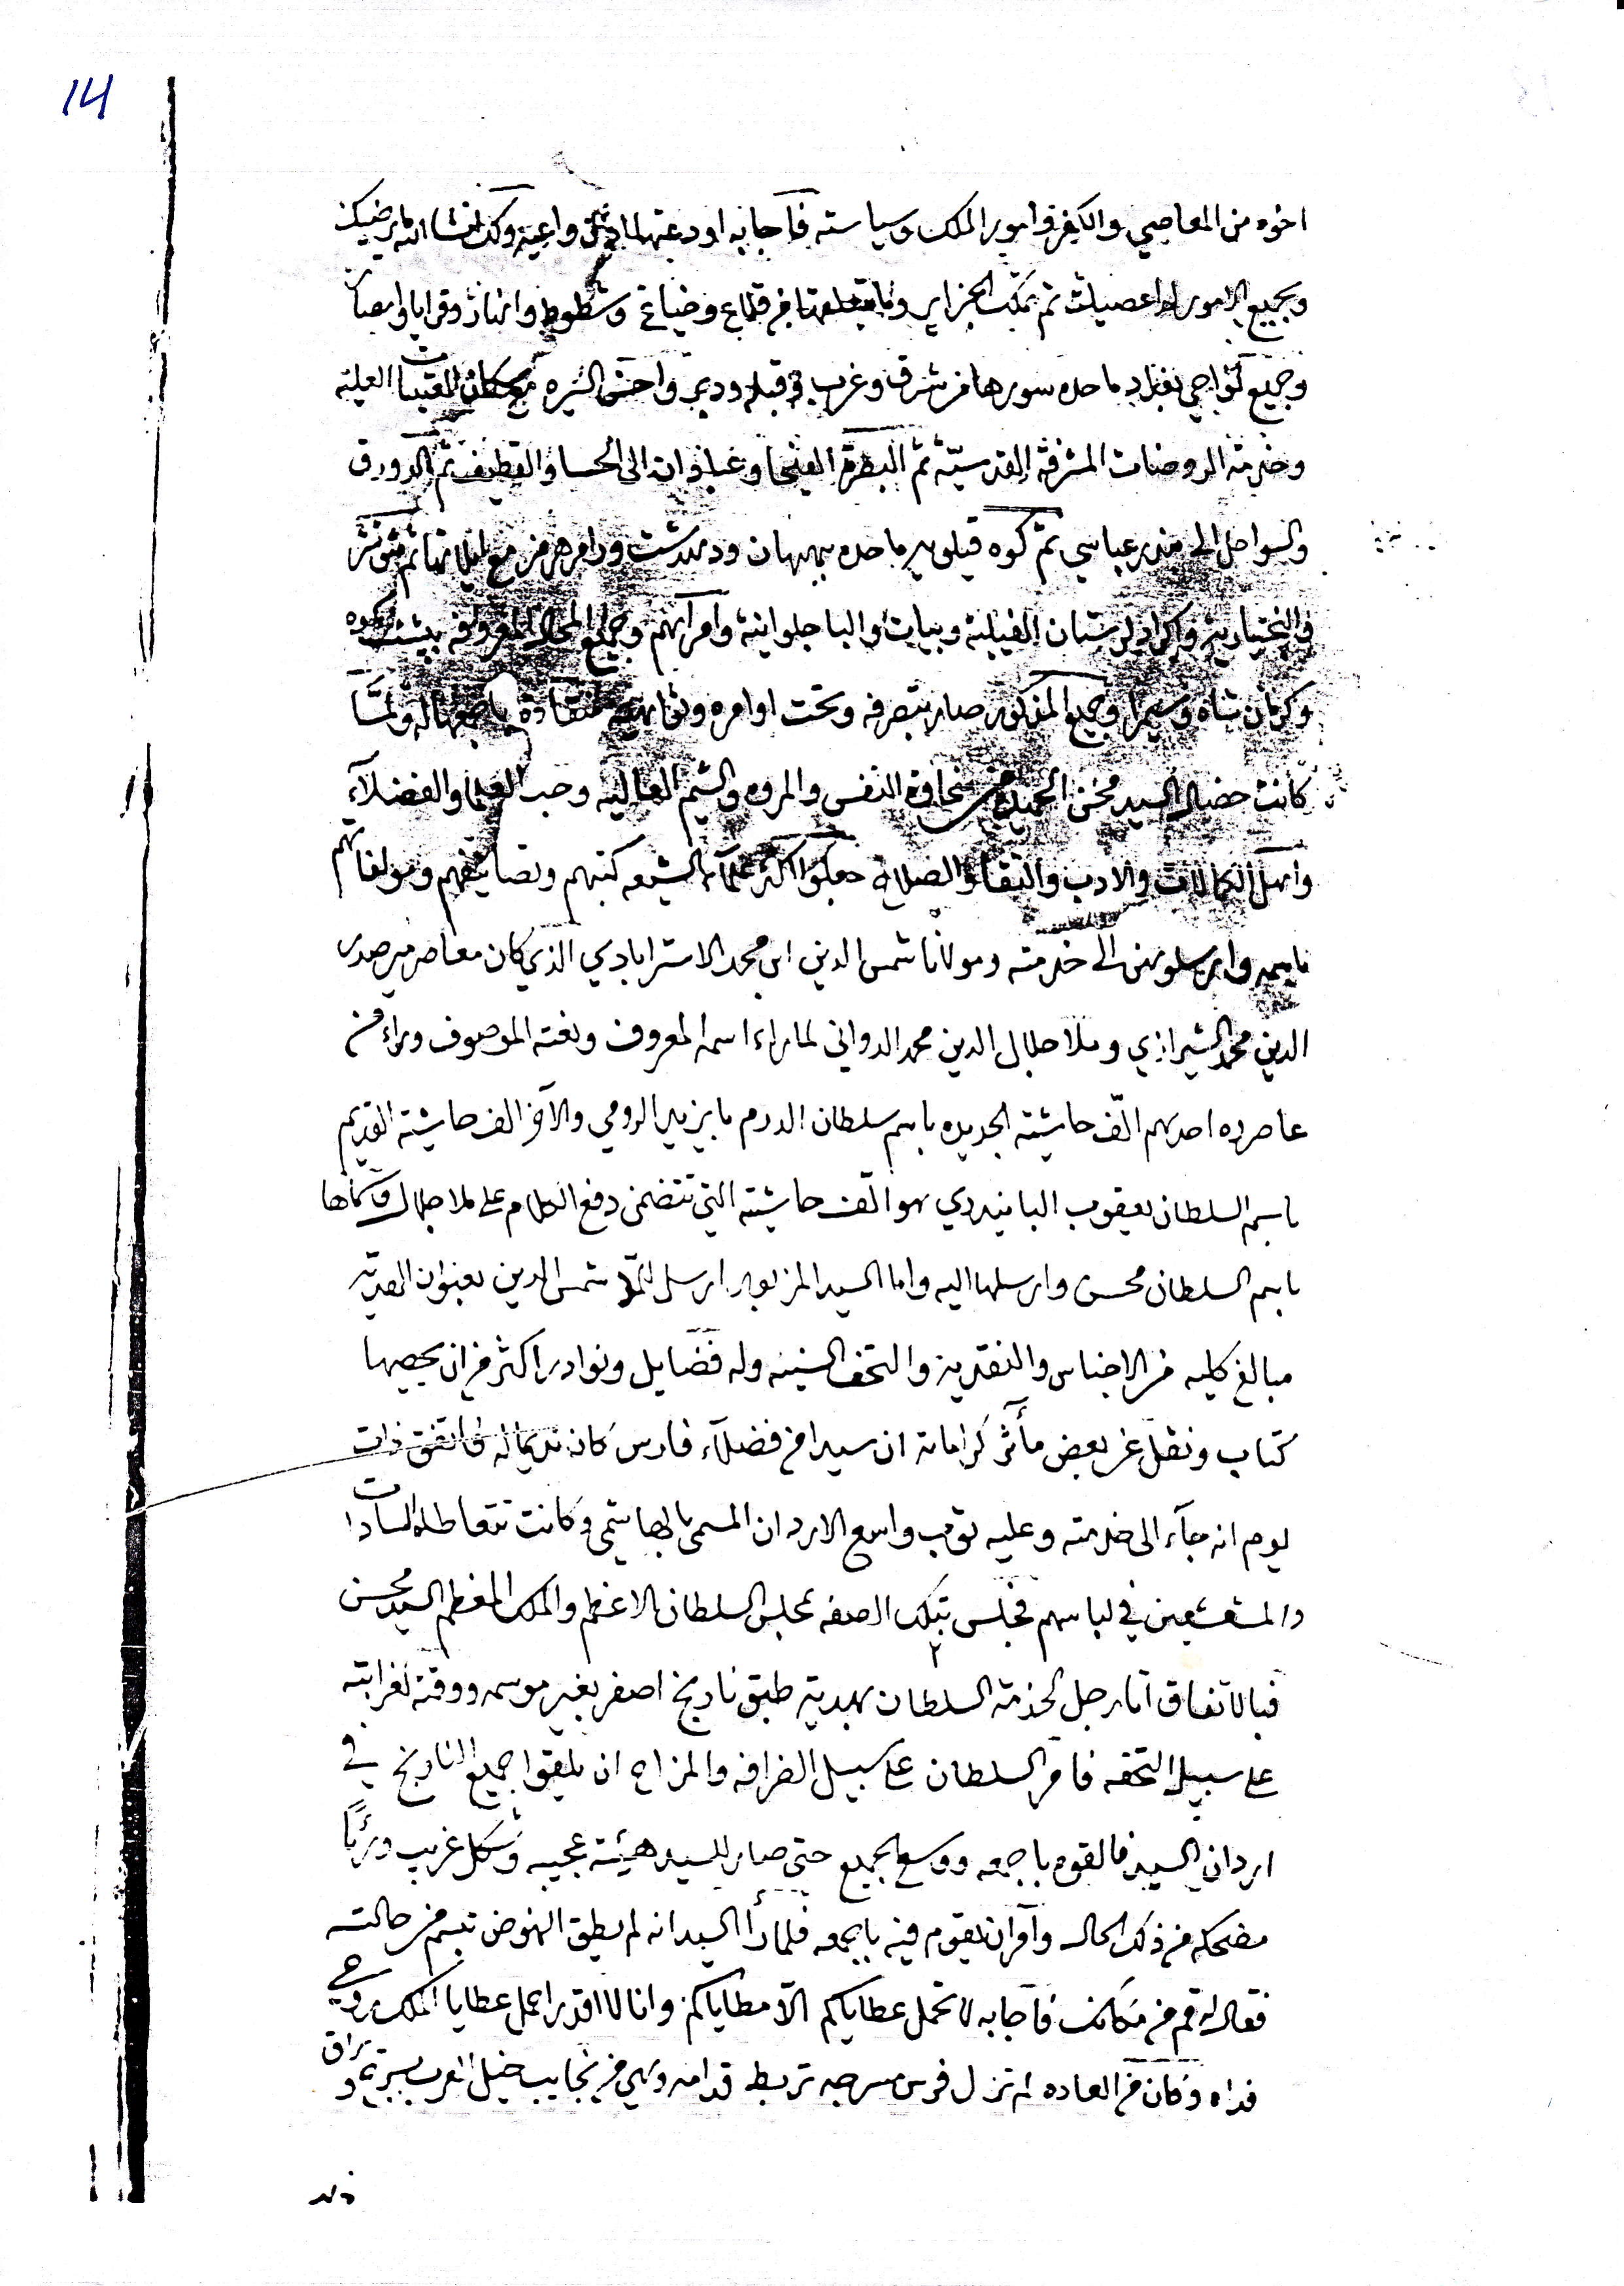 14
اخوه من المعاصي والكفر وامور الملك وسياسته فأجابه اودعتها اذن واعية وكذلك انشا الله يرضيك
وبجميع الامور لا اعصيك ثم تملك الجزاير وما يتعلق بها من قلاع وضياع وشطوط وانهار وقرايا وامصار
وجميع نواحي بغداد ما حده سورها من شرق وغرب وقبله ودبر واحسن السيره مع سكان العتبات العليه
وخدمة الروضات المشرفة القدسيّة ثم البصرة الفيحا وعبادان الى الحسا والقطيف ثم الدورق
والسواحل الى بندر عباسي ثم كوه قيلويه ما حده بهبهان ودهدشت ورامرهرمز مع ايلاتها ثم شوشتر
والبختياريه واكراد لرستان الفيليه وبيات والباجلوانية وامرآئهم وجميع المحال المعروفه ببشتكوه
وكرمان شاه وجميع المذكور صار بتصرفه وتحت اوامره ونواهيه منقادة باجمعها له ولمّا
كانت خصال السيد محسن الحميده من سخاوة النفس والمروه والشيم العاليه وحب العلما والفضلآء
واهل الكمالات والادب والتقا والصلاح جعلوا اكثر علمآء الشيعه كتبهم وتصانيفهم ومولفاتهم
باسمه وارسلوهن الى خدمته ومولانا شمس الدين ابن محمد الاسترابادي الذي كان معاصر مير صدر
الدين محمد الشيرازي وملا جلال الدين محمد الدواني لما راء اسمه المعروف ونعته الموصوف وراء من
عاصروه احدهم الّف حاشيته الجديده باسم سلطان الروم بايزيد الرومي والآخر الف حاشيته القديم
باسم السلطان يعقوب البايندري هو الّف حاشيته التي تتضمن دفع الكلام على ملا جلال وكماها
باسم السلطان محسن وارسلها اليه واما السيد المزبور ارسل للملا شمس الدين بعنوان الهديّه
مبالغ كليه من الاجناس والنقديه والتحف السنيه وله فضايل ونوادر اكثر من ان يحصيها
كتاب ونقل عن بعض مأثر كراماته ان سيدا من فضلآء فارس كان نديما له فاتفق ذات
يوم انه جآء الى خدمته وعليه ثوب واسع الاردان المسمى بالهاشمي وكانت تتعاطاه السادات
والمشعشعين في لباسهم فجلس بتلك الصفه بمجلس السلطان الاعظم والملك المعظم السيد محسن
فبالاتفاق اتا رجل لخدمة السلطان بهدية طبق نارنج اصفر بغير موسمه ووقته لغرابته
على سبيل التحفه فامر السلطان على سبيل الضرافه والمزاح ان يلقوا جميع النارنج في
اردان السيد فالقوه باجمعه ووسع الجميع حتى صار للسيد هيئة عجيبه وشكل غريب ورئيا
مضحكه من ذلك الحال وآمر ان يقوم فيه باجمعه فلما رأا السيد انه لم يطق النهوض تبسم من حالته
فقال له قم من مكانك فأجابه لا تحمل عطاياكم الّا مطاياكم وانا لا اقدر احمل عطايا الملك روحي
فداه وكان من العاده لم تزل فرس مسرجه تربط قدامه وهي من نجايب خيل العرب بسرج و يراق